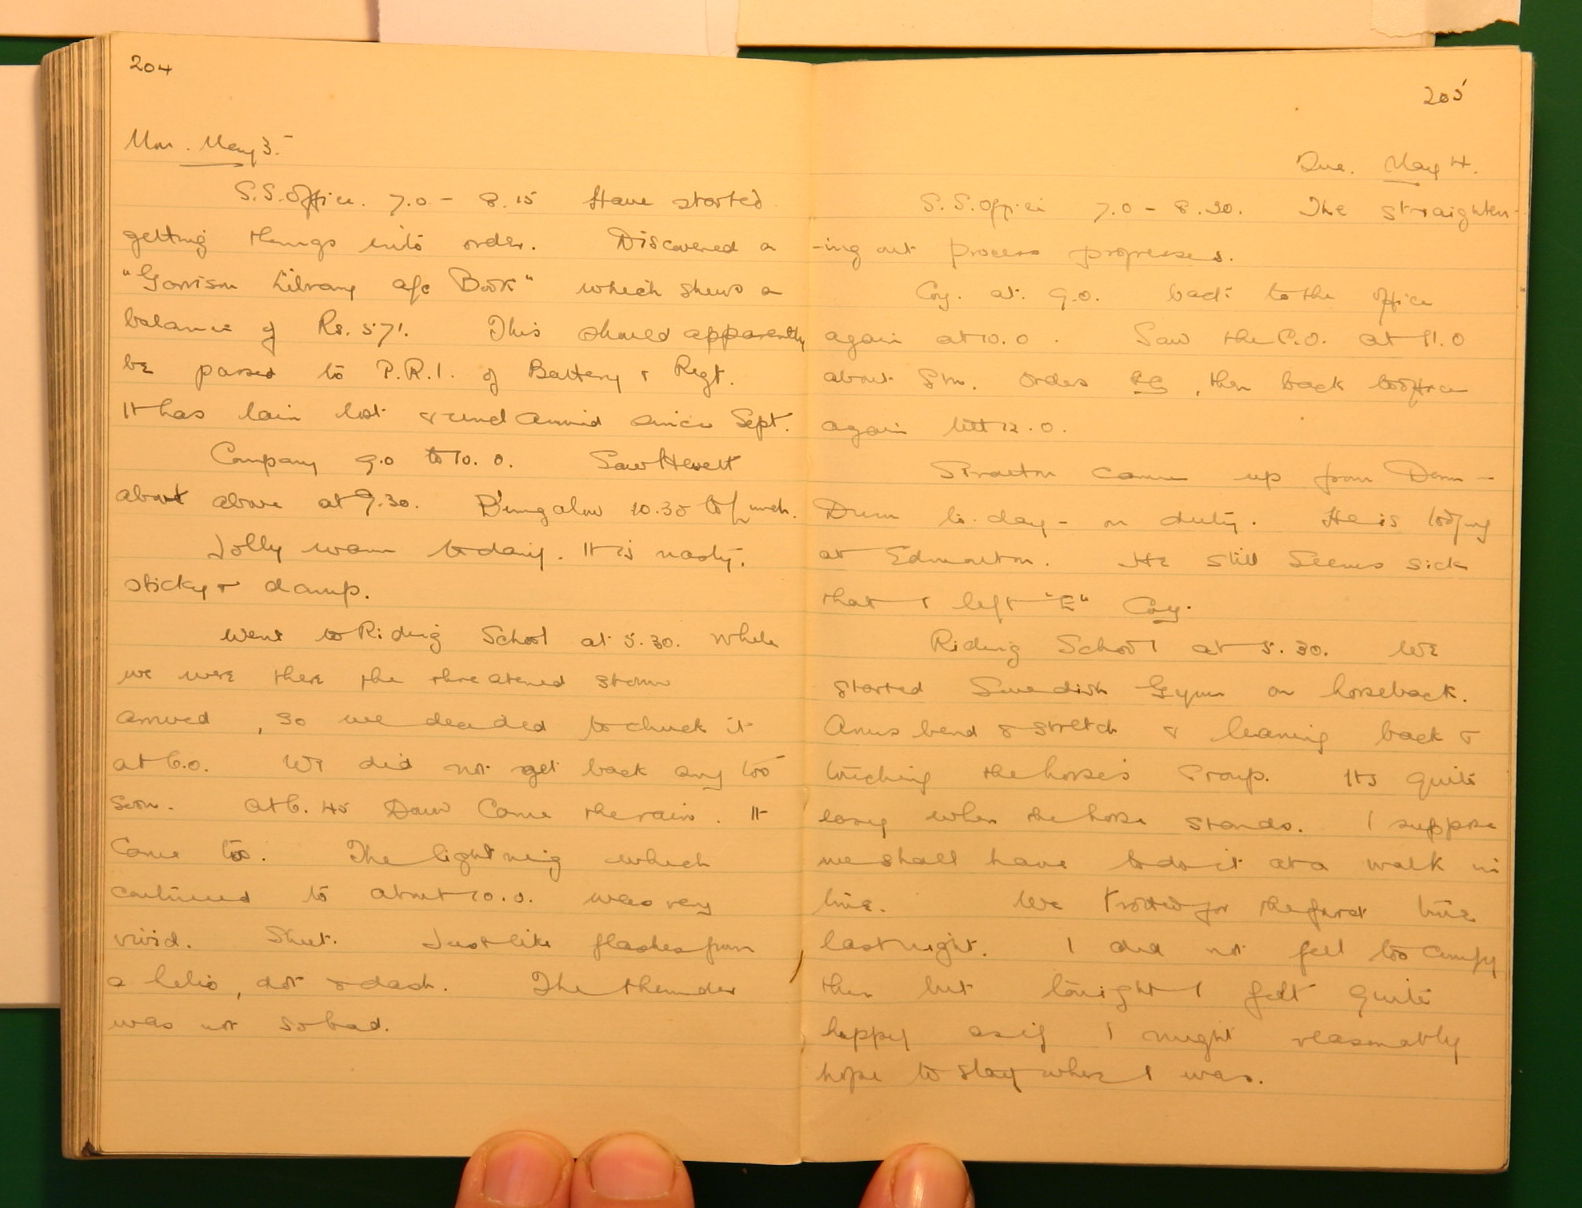 204
Mon. May 3.
S.S. Office. 7.0 - 8.15 Have started
getting things into order. Discovered a
"Garrison Library a/c Book" which shews a
balance of Rs. 571. This should apparently
be passed to P.R.I. of Battery & Regt.
It has lain lost & unclaimed since Sept.
Company 9.0 to 10.0. Saw Hewett
about above at 9.30. Bungalow 10.30 to Lunch.
Jolly warm today. It is nasty,
sticky & damp.
Went to Riding School at 5.30. While
we were there the threatened storm
arrived, so we decided to chuck it
at 6.0. We did not get back any too
soon. At 6.45 Down came the rain. It
came too. The lightning which
continued to about 10.0. was very
vivid. Sheet. Just like flashes from
a helio, dot & dash. The thunder
was not so bad.
205
Tue. May 4.
S.S. Office 7.0 - 8.30. The straighten-
-ing out process progresses.
Coy. at 9.0. back to the office
again at 10.0. Saw the C.O. at 11.0
about Stn. Orders, then back to office
again till 12.0.
came up from Dum-
Dum to-day - on duty. He is lodging
at Edmonton. He still seems sick
that I left "E" Coy.
Riding School at 5.30. We
started Swedish Gym on horseback.
Arms bend & stretch & leaning back &
touching the horse's croup. Its quite
easy when the horse stands. I suppose
we shall have to do it at a walk in
time. We trotted for the first time
last night. I did not feel too comfy
then but tonight I felt quite
happy as if I might reasonably
hope to stay where I was.